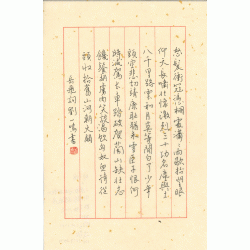 怒髮衝冠憑欄處瀟瀟雨歇抬望眼
仰天長嘯壯懷激烈三十功名塵與土
八千里路雲和月莫等閒白了少年
頭空悲切靖康恥猶未雪臣子恨何
時滅駕長車踏破賀蘭山缺壯志
饑餐胡虜肉笑談渴飲匈奴血待從
頭收拾舊山河朝天闕
岳飛詞劉書